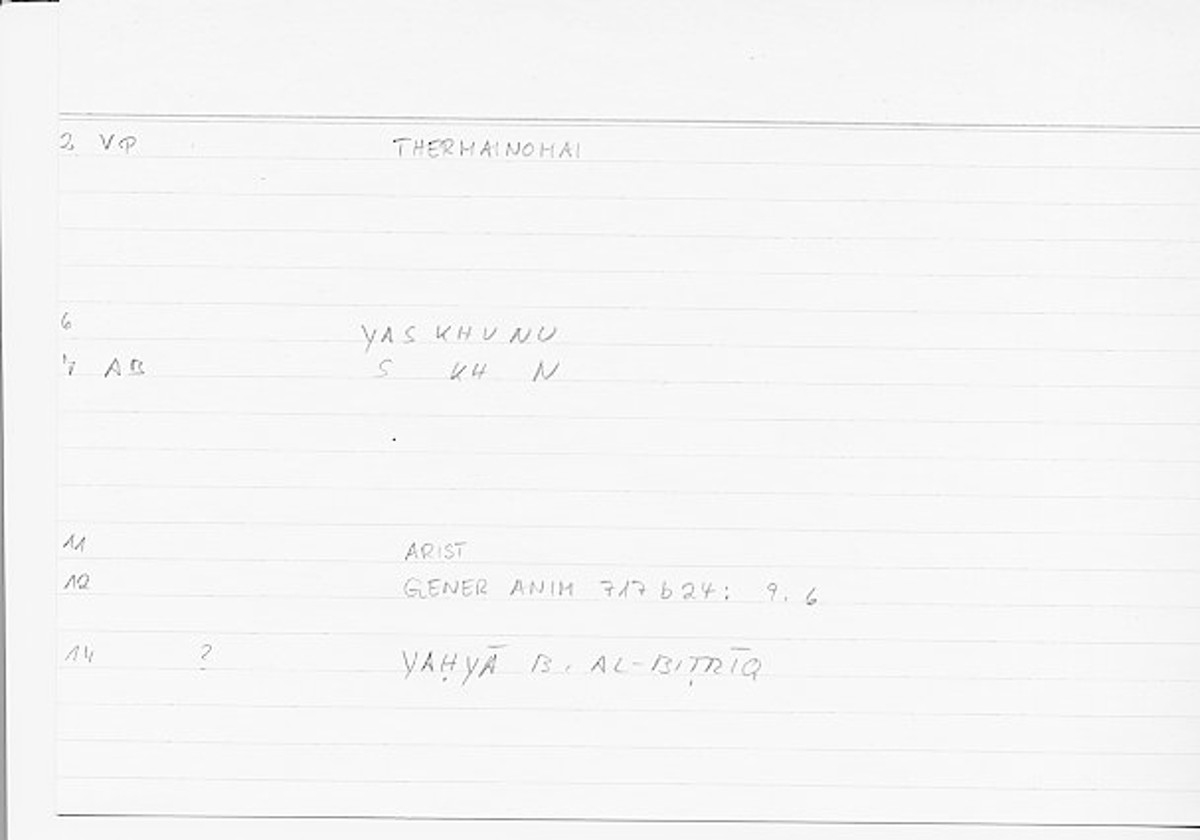 2 VP THERMAINOMAI
6 YASKHUNU
7 AB S KH N
11 ARIST
12 GENER ANIM 717 b 24: 9. 6
14 ? YAḤYĀ B. AL-BIṬRĪQ